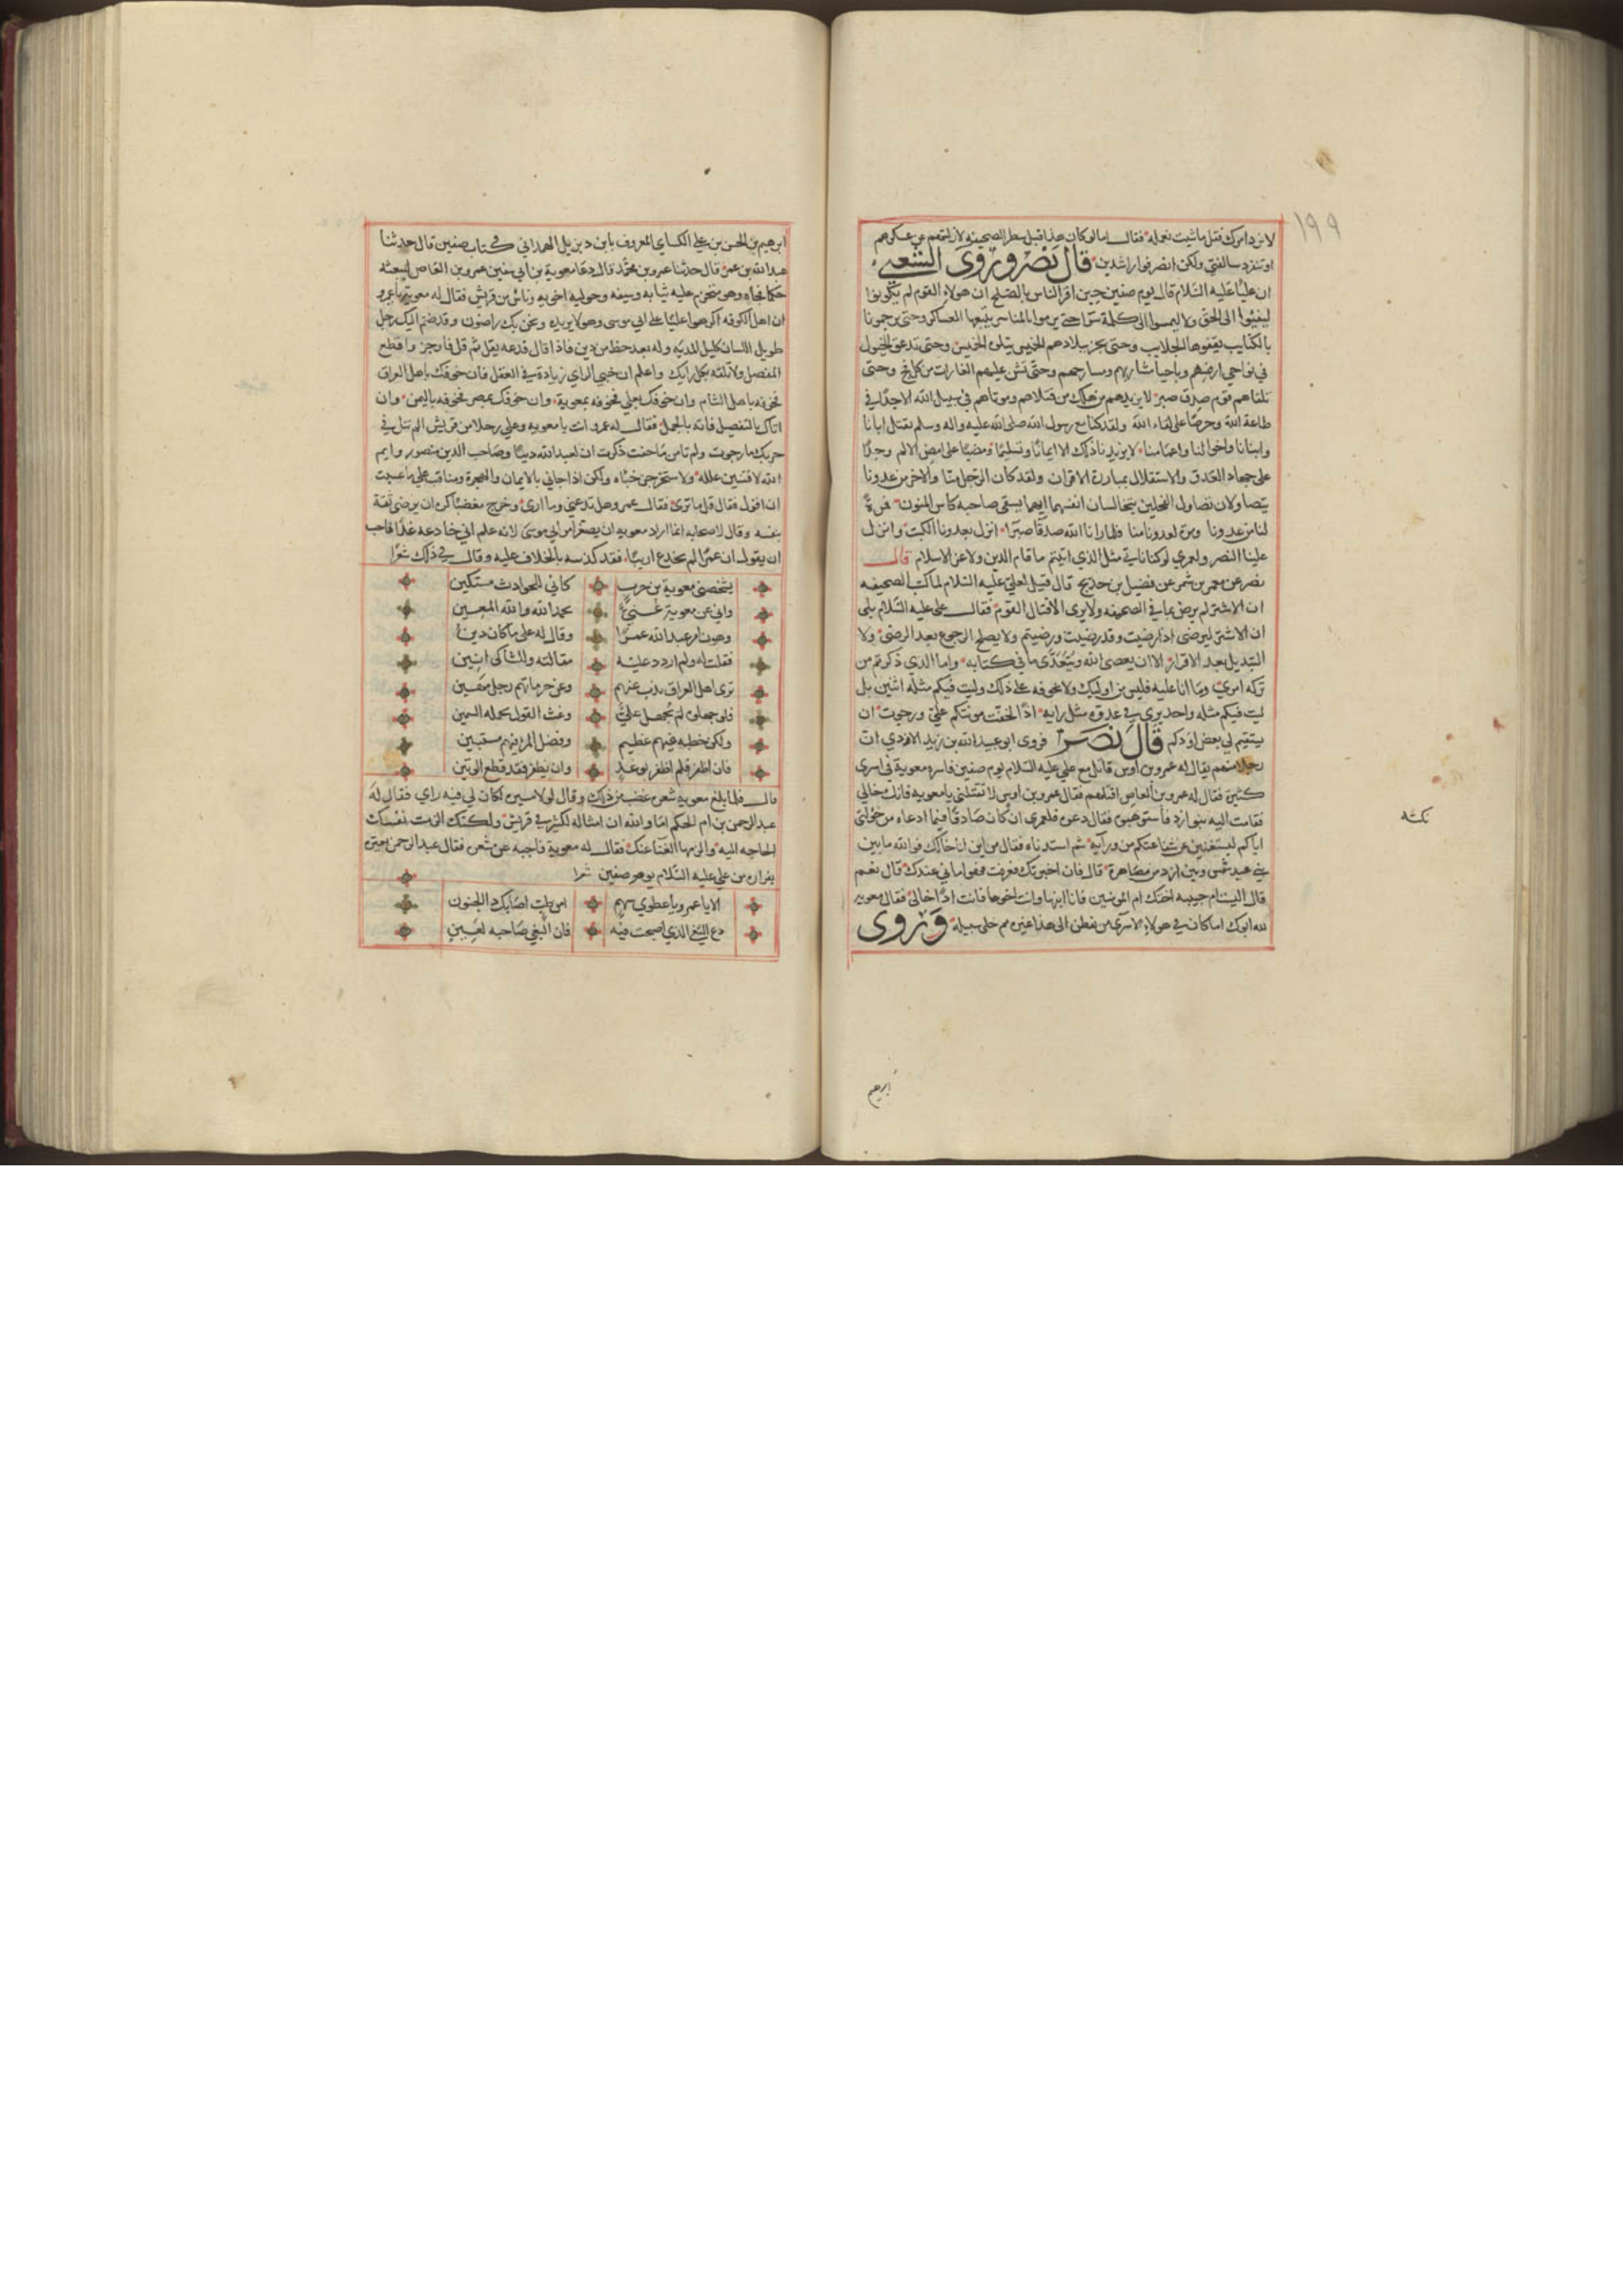 ١٩٩
لانرد امرك فقل ما شئت نعمله فقال اما لو كان هذا قبل سطر الصحيفه لازلتهم عن عسكرهم
او تنفرد سالفتي ولكن انصرفوا راشدين قال نصر وروى الشعبي
ان عليا عليه السلام قال يوم صفين حين اقر الناس بالصلح ان هولاء القوم لم يكونوا
ليفيئوا الى الحق ولا ليجيبوا الى كلمة سوا حتى يرموا بالمناسر يتبعها العساكر وحتى يرجموا
بالكتايب تقفوها الجلايب وحتى يجر ببلادهم الخميس يتلوه الخميس وحتى تدعق الخيول
في نواحي ارضهم وباحنا مساربهم ومسارحهم وحتى تشن عليهم الغارات من كل فج وحتى
تلقاهم قوم صدق صبر لا يزيدهم من هلك من قتلاهم وموتاهم في سبيل الله الا جدا في
طاعة الله وحرصا على لقاء الله ولقد كنا مع رسول الله صلى الله عليه واله وسلم نقتل ابانا
وابنانا واخوالنا واعمامنا لا يزيدنا ذلك الا ايمانا وتسليما ومضيا على امض الالم وجدا
على جهاد العدو والاستقلال بمبارزة الاقران ولقد كان الرجل منا والاخر من عدونا
يتصاولان تصاول الفحلين يتخالسان انفسهما ايهما يسقي صاحبه كاس المنون فمرة
لنا من عدونا ومرة لعدونا منا فلما رانا الله صدقا صبرا انزل بعدونا الكبت وانزل
علينا النصر ولعمري لو كنا ناتي مثل الذي اتيتم ما قام الدين ولا عز الاسلام قال
نصر عن عمر بن شمر عن فضيل بن خديج قال قيل لعلي عليه السلام لما كتب الصحيفه
ان الاشتر لم يرض بما في الصحيفه ولا يرى الا قتال القوم فقال علي عليه السلام بلى
ان الاشتر ليرضى اذا رضيت وقد رضيت ورضيتم ولا يصلح الرجوع بعد الرضى ولا
التبديل بعد الاقرار الا ان يعصى الله ويتعدى ما في كتابه واما الذي ذكرتم من
تركه امري وما انا عليه فليس من اوليك ولا نخوفه على ذلك وليت فيكم مثله اثنين بل
ليت فيكم مثله واحد يرى في عدوه مثل رايه اذا لخفت مونتكم علي ورجوت ان
يستقيم لي بعض اودكم قال نصر فروى ابو عبد الله بن زيد الاودي ان
رجلا منهم يقال له عمرو بن اوس قاتل مع علي عليه السلام يوم صفين فاسره معوية في اسرى
كثيرة فقال له عمرو بن العاص اقتلهم فقال عمرو بن اوس لا تقتلني يا معويه فانك خالي
فقامت اليه بنو اود فاستوهبوه فقال دعوه فلعمري ان كان صادقا فيما ادعاه من خؤلتي
اياكم ليستغنين عن شفاعتكم من ورآيه ثم استدناه فقال من اين انا خالك فوالله ما بين
بني عبد شمس وبين اود من مصاهرة قال فان اخبرتك فعرفت فهو اماني عندك قال نعم
قال اليست ام حبيبه اختك ام المومنين فانا ابنها وانت اخوها فانت اذا خالي فقال معويه
لله ابوك اما كان في هولاء الاسرى من يفطن الى هذا غيره ثم خلى سبيله وروى
نكته
ابرهيم
ابرهيم بن الحسن بن علي الكساي المعروف بابن ديزيل الهمداني في كتاب صفين قال حدثنا
عبد الله بن عمر قال حدثنا عمرو بن محمد قال دعا معوية بن ابي سفين عمرو بن العاص ليبعثه
حكما فجاه وهو متحزم عليه ثيابه وسيفه وحوليه اخوه وناس من قريش فقال له معوية يا عمرو
ان اهل الكوفه اكرهوا عليا على ابي موسى وهو لا يريده ونحن بك راضون وقد ضم اليك رجل
طويل اللسان كليل المديه وله بعد حظ من دين فاذا قال فدعه يقل ثم قل فاوجز واقطع
المفصل ولا تلقه بكل رايك واعلم ان خبي الراي زيادة في العقل فان خوفك باهل العراق
فخوفه باهل الشام وان خوفك بعلي فخوفه بمعوية وان خوفك بمصر فخوفه باليمن وان
اتاك بالتفصيل فاته بالجمل فقال له عمرو انت يا معويه وعلي رجلا من قريش الم تنل في
حربك ما رجوت ولم تامن ما خفت ذكرت ان لعبد الله دينا وصاحب الدين منصور وايم
الله لافنين علله ولاستخرجن خبأه ولكن اذا جاني بالايمان والهجرة ومناقب علي ما عسيت
ان اقول فقال قل ما ترى فقال عمرو وهل تدعني وما ارى وخرج مغضبا كره ان يوصى ثقة
بنفسه وقال لاصحابه انما اراد معويه ان يصغر امر ابي موسى لانه علم اني خادعه غدا فاحب
ان يقول ان عمرا لم يخدع اريبا فقد كذبه بالخلاف عليه وقال في ذلك شعرا
يشخصني معوية بن حرب كاني للحوادث مستكين
واني عن معوية غني بحمد الله والله المعين
وهون امر عبد الله عمرا وقال له على ما كان دين
فقلت له ولم اردد عليه مقالته وللشاكي انين
ترى اهل العراق يذب عنهم وعن حرماتهم رجل مهين
فلو جهلوه لم يجهل علي وغث القول يحمله السمين
ولكن خطبه فيهم عظيم وفضل المرء فيهم مستبين
فان اظفر فلم اظفر بوغد وان يظفر فقد قطع الوتين
قال فلما بلغ معويه شعره غضب من ذلك وقال لولا مسيره لكان لي فيه راي فقال له
عبد الرحمن بن ام الحكم اما والله ان امثاله لكثير في قريش ولكنك الزمت نفسك
الحاجه اليه والزمها الغنا عنك فقال له معوية فاجبه عن شعره فقال عبد الرحمن يعيره
بفراره من علي عليه السلام يوم صفين شعرا
الا يا عمرو يا عمرو سهم امن طب اصابك ذا الجنون
دع البغي الذي اصبحت فيه فان البغي صاحبه لعين